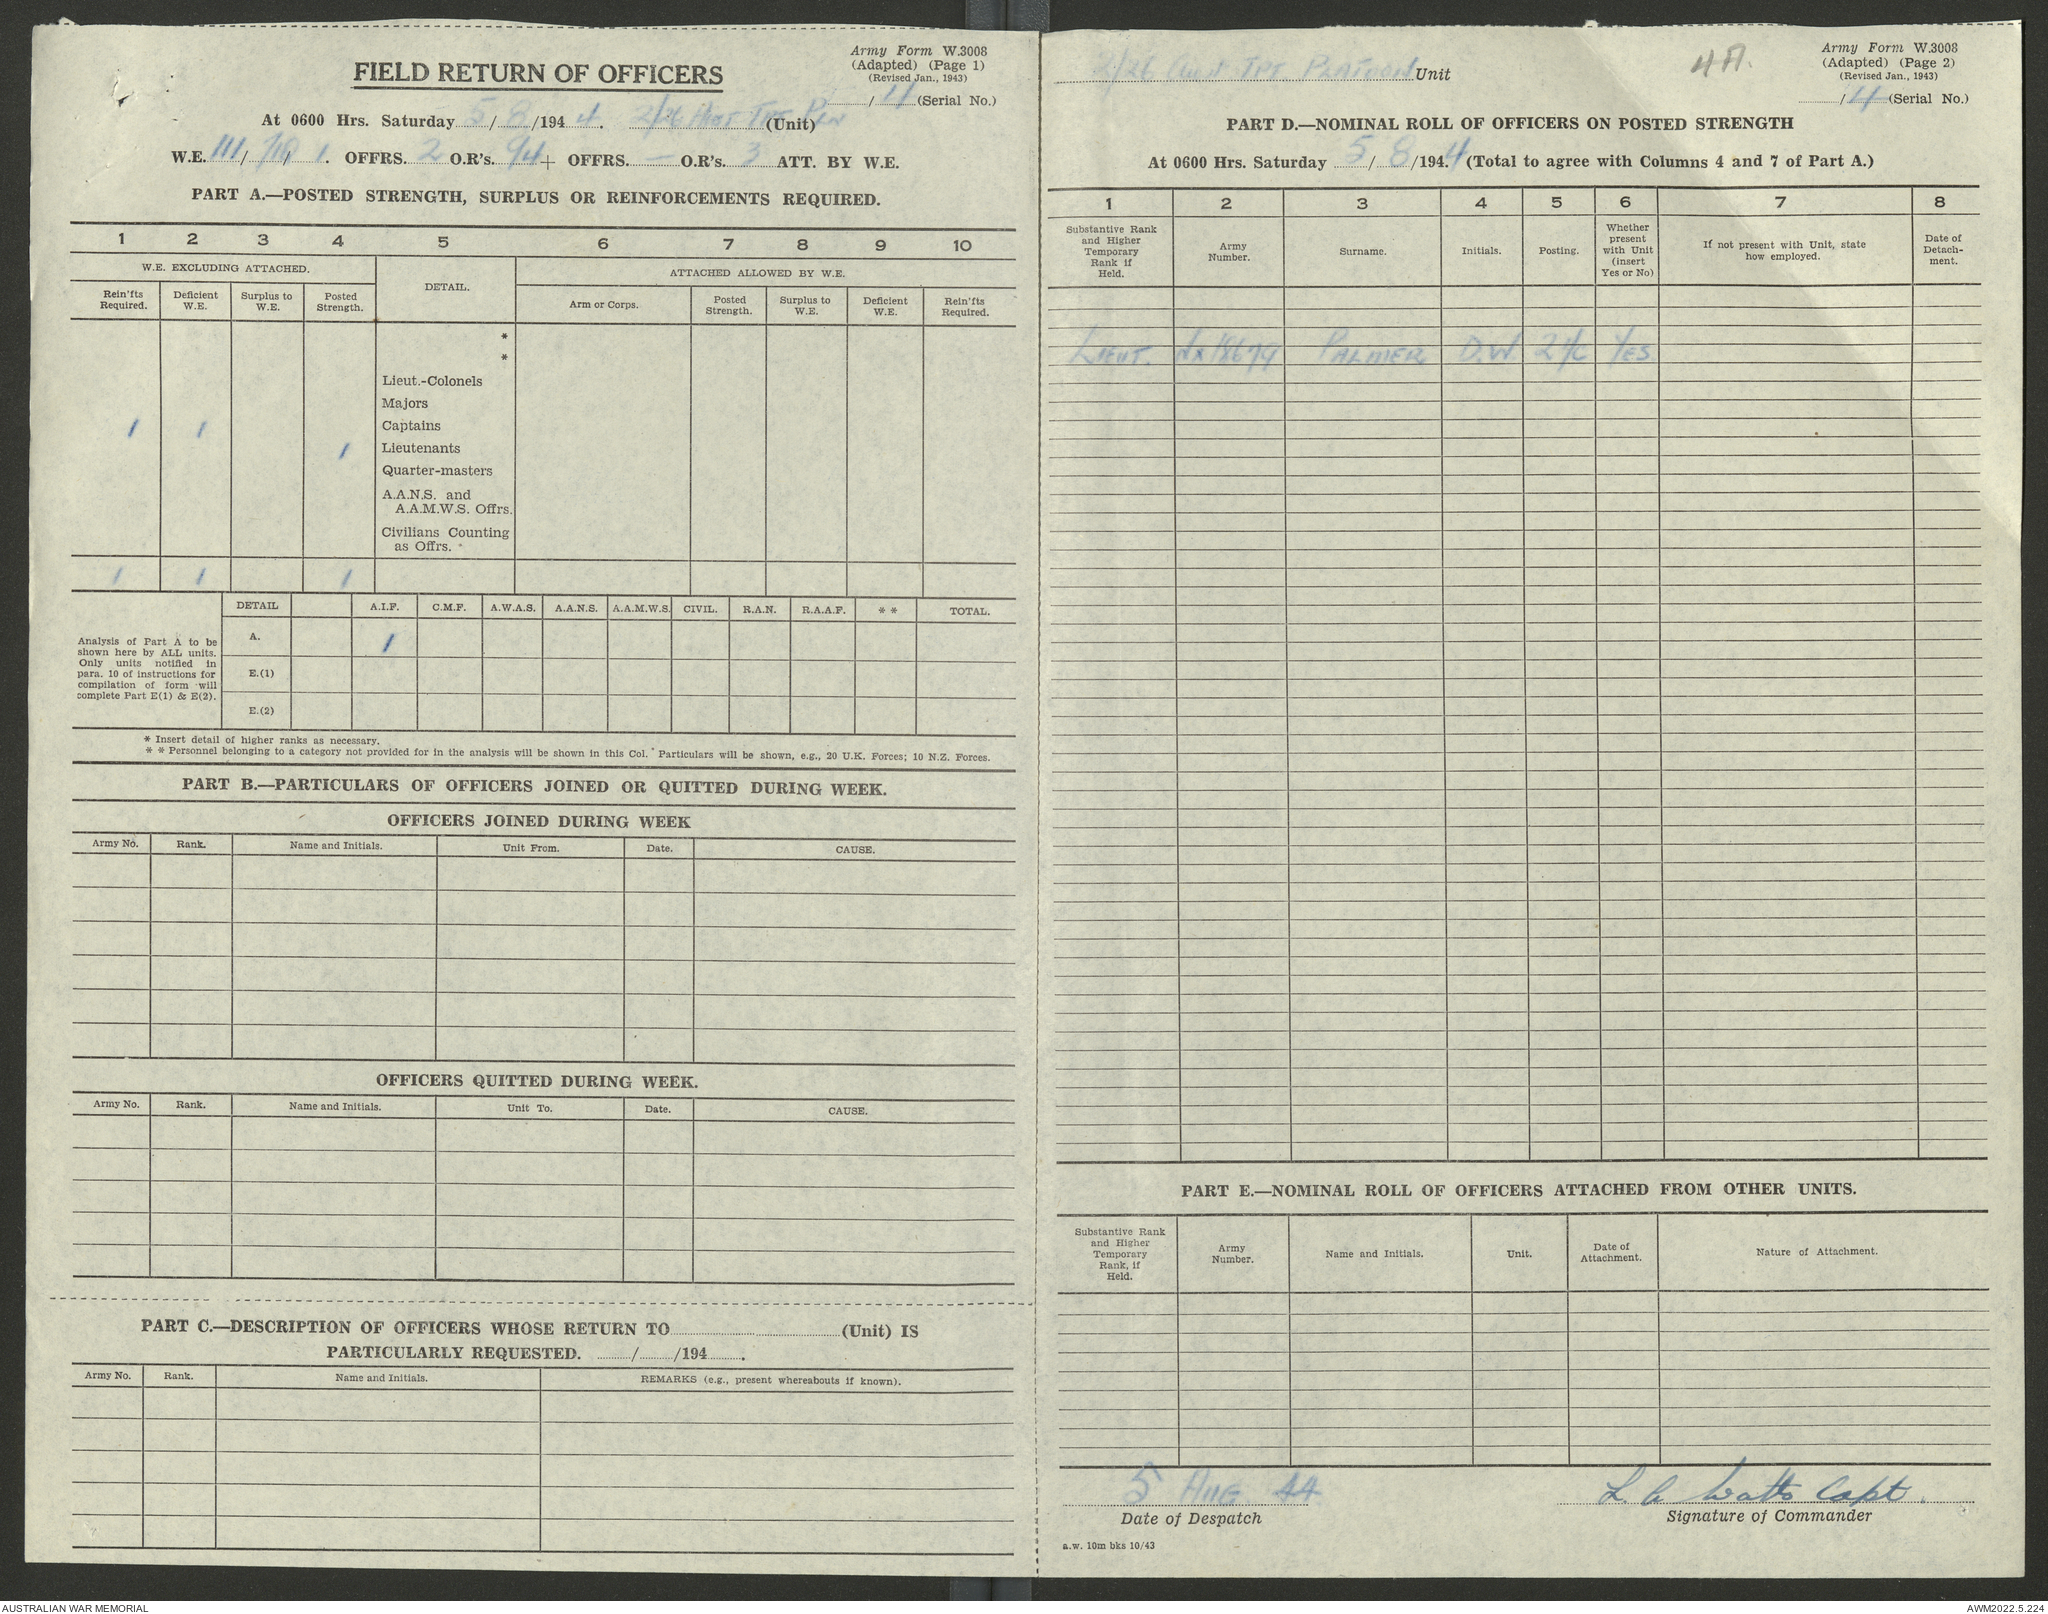 Army Form W.3008
(Adapted) (Page 1)
(Revised Jan., 1943)
FIELD RETURN OF OFFICERS
/ 4 (Serial No.)
At 0600 Hrs. Saturday 5 / 8 /194 4. 2/26 TPT PLN (Unit)
W.E. 111/ / 1. OFFRS. 2 O.R's. 94 + OFFRS. — O.R's. 3 ATT. BY W.E.
PART A.—POSTED STRENGTH, SURPLUS OR REINFORCEMENTS REQUIRED.
1 2 3 4 5 6 7 8 9 10
W.E. EXCLUDING ATTACHED. DETAIL. ATTACHED ALLOWED BY W.E.
Rein'fts Required. Deficient W.E. Surplus to W.E. Posted Strength. Arm or Corps. Posted Strength. Surplus to W.E. Deficient W.E. Rein'fts Required.
*
*
Lieut.-Colonels
Majors
1 1 Captains
1 Lieutenants
Quarter-masters
A.A.N.S. and
A.A.M.W.S. Offrs.
Civilians Counting
as Offrs.
1 1 1
DETAIL A.I.F. C.M.F. A.W.A.S. A.A.N.S. A.A.M.W.S. CIVIL. R.A.N. R.A.A.F. * * TOTAL.
Analysis of Part A to be
shown here by ALL units.
Only units notified in
para. 10 of instructions for
compilation of form will
complete Part E(1) & E(2).
A. 1
E.(1)
E.(2)
* Insert detail of higher ranks as necessary.
* * Personnel belonging to a category not provided for in the analysis will be shown in this Col. Particulars will be shown, e.g., 20 U.K. Forces; 10 N.Z. Forces.
PART B.—PARTICULARS OF OFFICERS JOINED OR QUITTED DURING WEEK.
OFFICERS JOINED DURING WEEK
Army No. Rank. Name and Initials. Unit From. Date. CAUSE.
OFFICERS QUITTED DURING WEEK.
Army No. Rank. Name and Initials. Unit To. Date. CAUSE.
PART C.—DESCRIPTION OF OFFICERS WHOSE RETURN TO (Unit) IS
PARTICULARLY REQUESTED. / /194 .
Army No. Rank. Name and Initials. REMARKS (e.g., present whereabouts if known).
2/26 TPT PLATOON Unit
4A.
Army Form W.3008
(Adapted) (Page 2)
(Revised Jan., 1943)
/ 4 (Serial No.)
PART D.—NOMINAL ROLL OF OFFICERS ON POSTED STRENGTH
At 0600 Hrs. Saturday 5 / 8 /194 4 (Total to agree with Columns 4 and 7 of Part A.)
1 2 3 4 5 6 7 8
Substantive Rank and Higher Temporary Rank if Held. Army Number. Surname. Initials. Posting. Whether present with Unit (insert Yes or No) If not present with Unit, state how employed. Date of Detach-ment.
LIEUT. NX18679 PALMER D.W. 2 I/C YES
PART E.—NOMINAL ROLL OF OFFICERS ATTACHED FROM OTHER UNITS.
Substantive Rank and Higher Temporary Rank, if Held. Army Number. Name and Initials. Unit. Date of Attachment. Nature of Attachment.
5 AUG. 44
Date of Despatch
L. A Watts Capt.
Signature of Commander
a.w. 10m bks 10/43
AUSTRALIAN WAR MEMORIAL
AWM2022.5.224